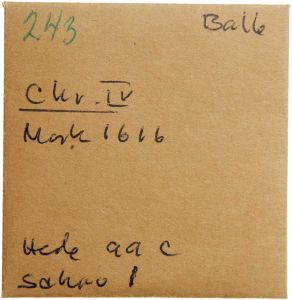 243 Balle
Chr. IV
Mark 1616
Hede 99 C
Schou 1